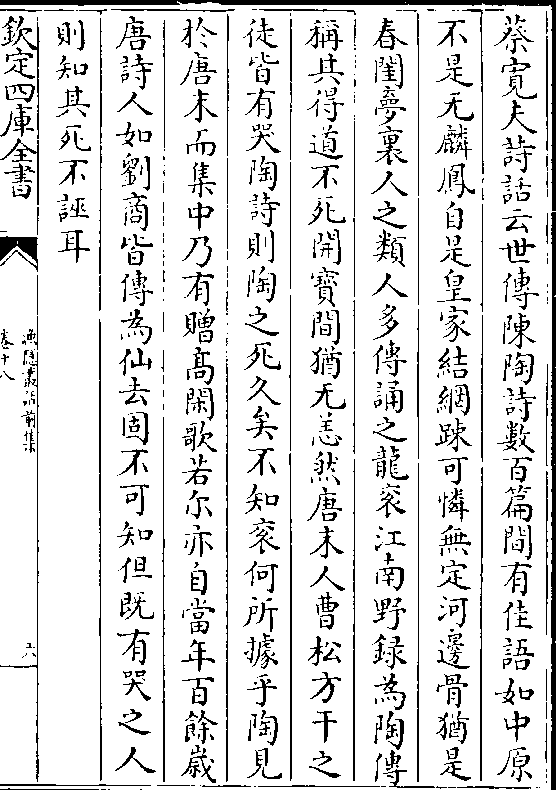 蔡寛夫詩話云世傳陳陶詩數百篇間有佳語如中原
不是无麟鳳自是皇家結網踈可憐無定河邊骨猶是
春閨夢裏人之類人多傳誦之龍衮江南野録為陶傳
稱其得道不死開寳間猶无恙然唐末人曹松方干之
徒皆有哭陶詩則陶之死久矣不知衮何所據乎陶見
於唐末而集中乃有贈髙閑歌若尔亦自當年百餘歲
唐詩人如劉商皆傳為仙去固不可知但既有哭之人
則知其死不誣耳
欽定四庫全書
漁隱叢話前集
卷十八
六